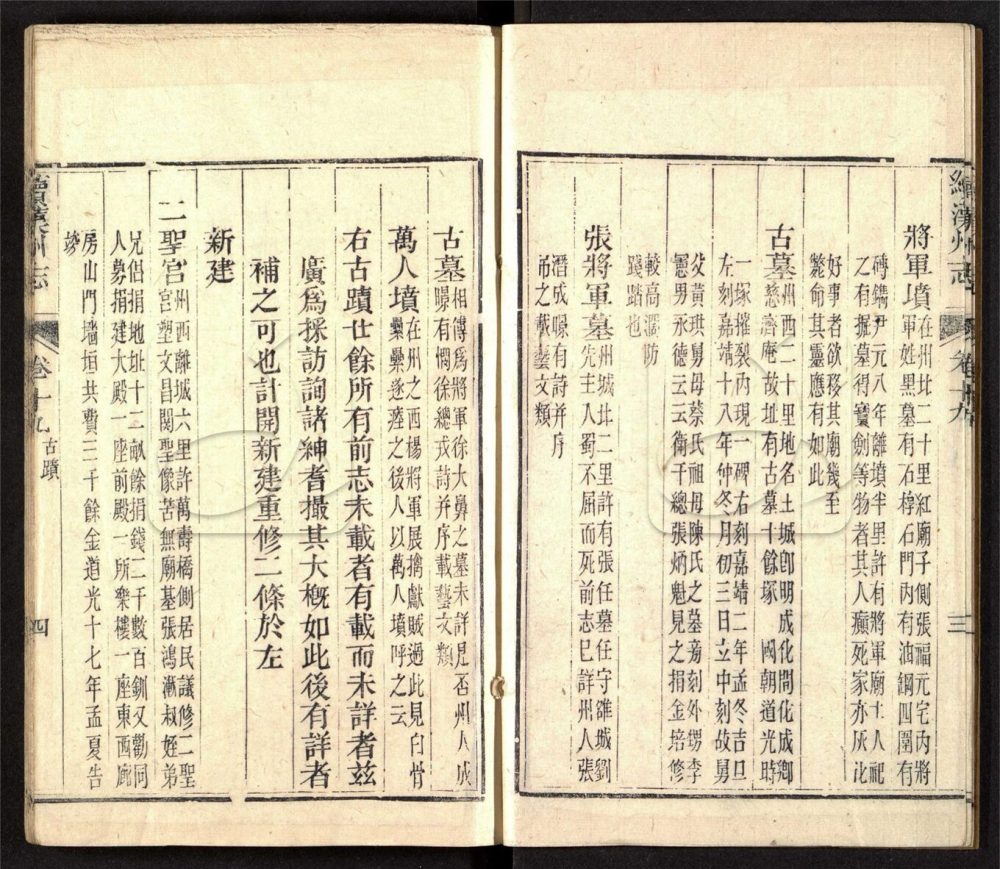 續漢州志
卷十九
三
將軍墳在州北二十里紅廟子側張福元宅內將
軍姓黑墓有石椁石門內有油鍋四圍有
磚鐫尹元八年離墳半里許有將軍廟土人祀
之有掘墓得寶劍等物者其人癲死家亦灰
好事者欲移其廟幾至
斃命其靈應有如此
古墓州西二十里地名土城卽明成化間化成鄉
慈濟庵故址有古墓十餘塚 國朝道光時
一塚摧裂內現一碑右刻嘉靖二年孟冬吉旦
左刻嘉靖十八年仲冬月初三日立中刻故舅
父黃珙舅母蔡氏祖母陳氏之墓旁刻外甥李
憲男永德云云衛千總張炳魁見之捐金培修
較高濶防
踐踏也
張將軍墓州城北二里許有張任墓任守雒城劉
先主入蜀不屈而死前志已詳州人張
潛成暻有詩并序
吊之載藝文類
古墓相傳爲將軍徐大鼻之墓未詳是否州人成
暻有惆徐總戎詩并序載藝文類
萬人墳在州之西楊將軍展擒獻賊過此見白骨
纍纍遂瘞之後人以萬人墳呼之云
右古蹟廿餘所有前志未載者有載而未詳者茲
廣爲採訪詢諸紳耆撮其大槪如此後有詳者
補之可也計開新建重修二條於左
新建
二聖宮州西離城六里許萬壽橋側居民議修二聖
宮塑文昌關聖像苦無廟基張鴻漸叔姪弟
兄侶捐地址十二畝餘捐錢二千數百釧又勸同
人募捐建大殿一座前殿一所樂樓一座東西廊
房山門墻垣共費三千餘金道光十七年孟夏告
竣
續漢州志
卷十九
古蹟
四